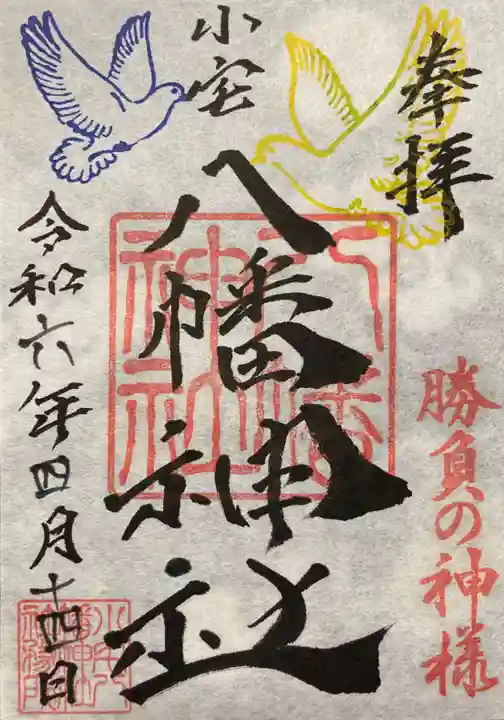 奉拝
勝負の神様
小宅
八幡神社
八幡
神社
令和六年四月十四日